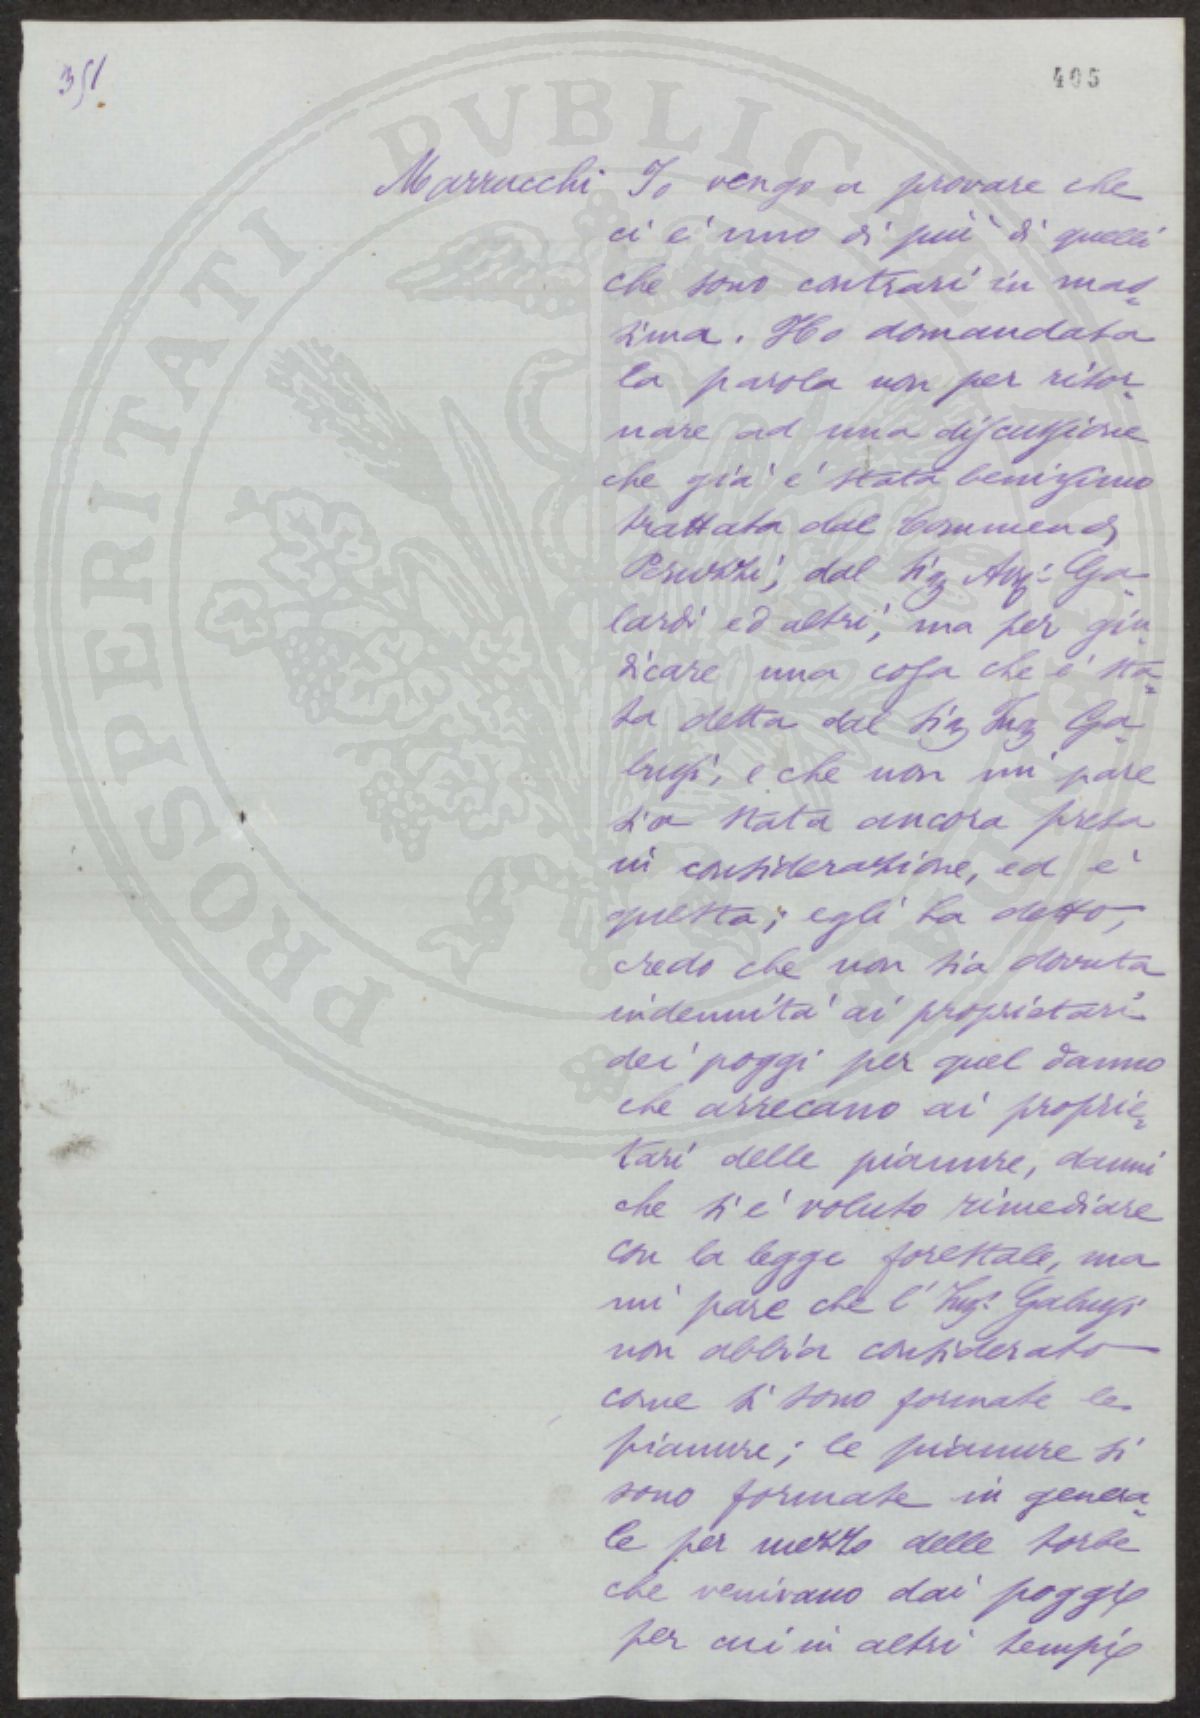 351
405
Marrucchi Io vengo a provare che
ci è uno di più di quelli
che sono contrari in mas-
sima. Ho domandata
la parola non per ritor-
nare ad una discussione
che già è stata benissimo
trattata dal Commend.
Peruzzi, dal Sig. Avv. Ga-
lardi ed altri, ma per giu-
dicare una cosa che è sta-
ta detta dal Sig. Ing. Ga-
bussi, e che non mi pare
sia stata ancora presa
in considerazione, ed è
questa; egli ha detto,
credo che non sia dovuta
indennità ai proprietari
dei poggi per quel danno
che arrecano ai proprie-
tari delle pianure, danni
che si è voluto rimediare
con la legge forestale, ma
mi pare che l'Ing. Gabussi
non abbia considerato
come si sono formate le
pianure; le pianure si
sono formate in genera-
le per mezzo delle torbe
che venivano dai poggi
per cui in altri tempi
PROSPERITATI PVBLICAE